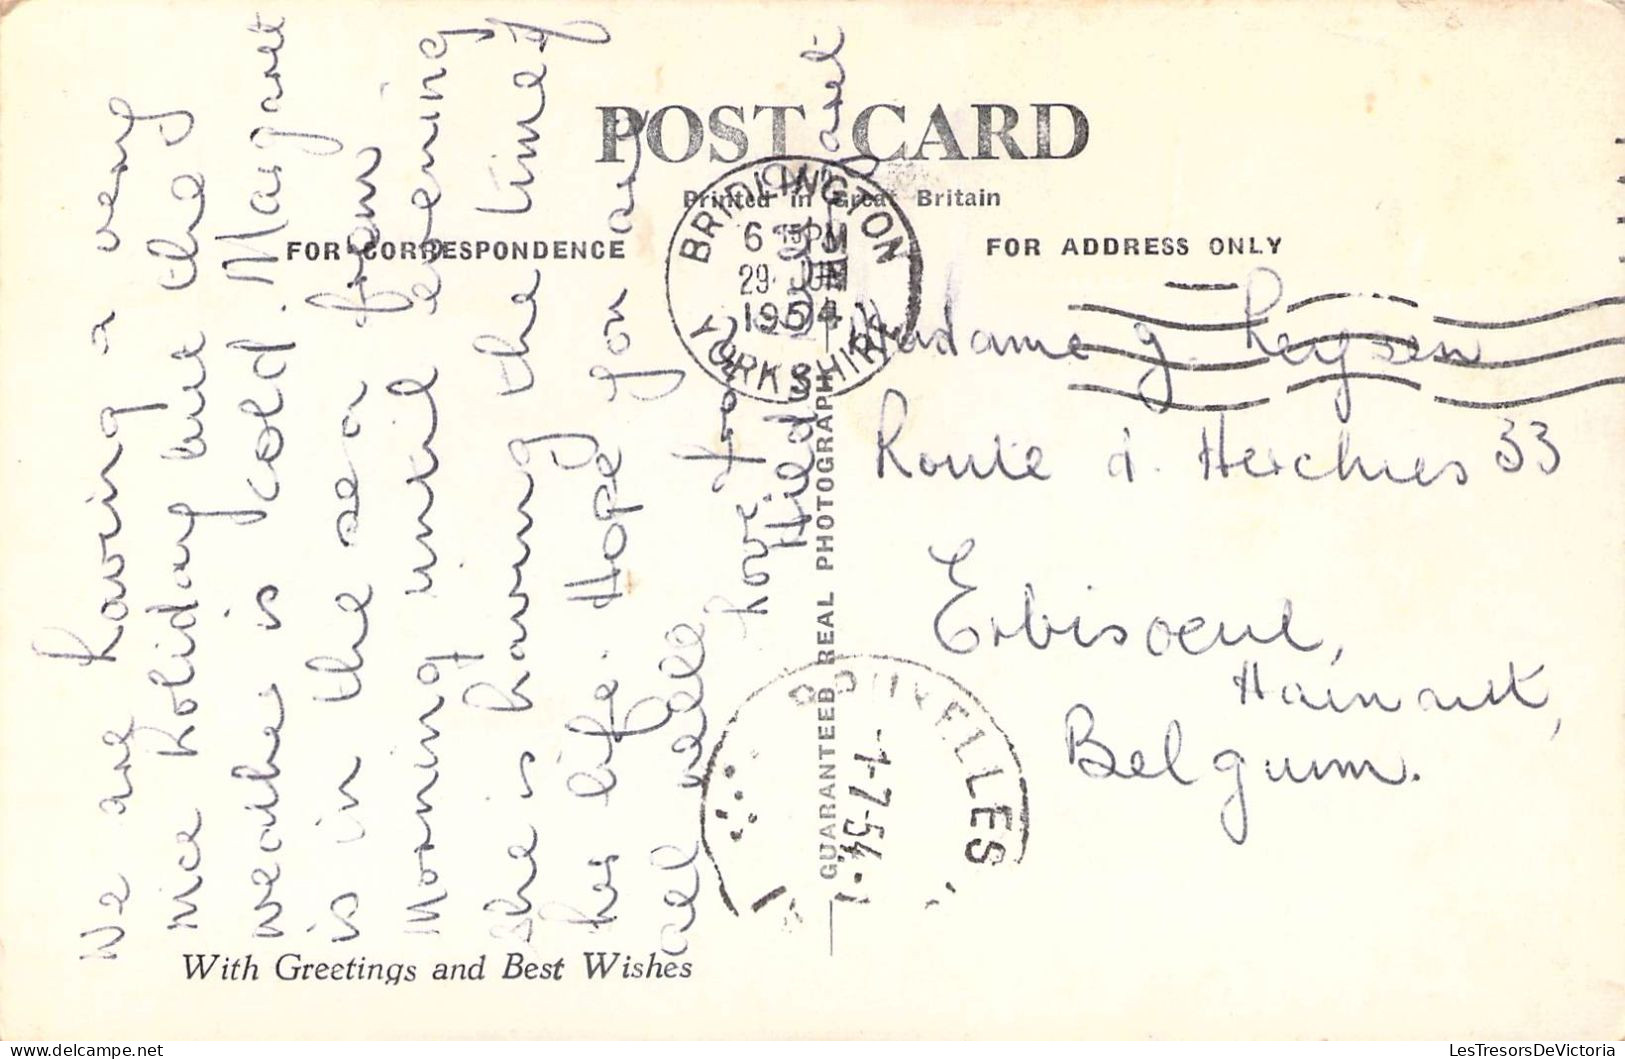 POST CARD
Printed in Great Britain
FOR CORRESPONDENCE
FOR ADDRESS ONLY
BRIDLINGTON
6 15PM
29 JUN
1954
YORKSHIRE
We are having a very
nice holiday but the
weather is cold. Margaret
is in the sea from
morning until evening
she is having the time of
her life. Hope you are
all well
Love from
Hilda
Madame J. Leysen
Route d. Herchies 33
Erbisoeul,
Hainaut,
Belgium.
GUARANTEED REAL PHOTOGRAPH
-1-7-54.-1
With Greetings and Best Wishes
LesTresorsDeVictoria
delcampe.net